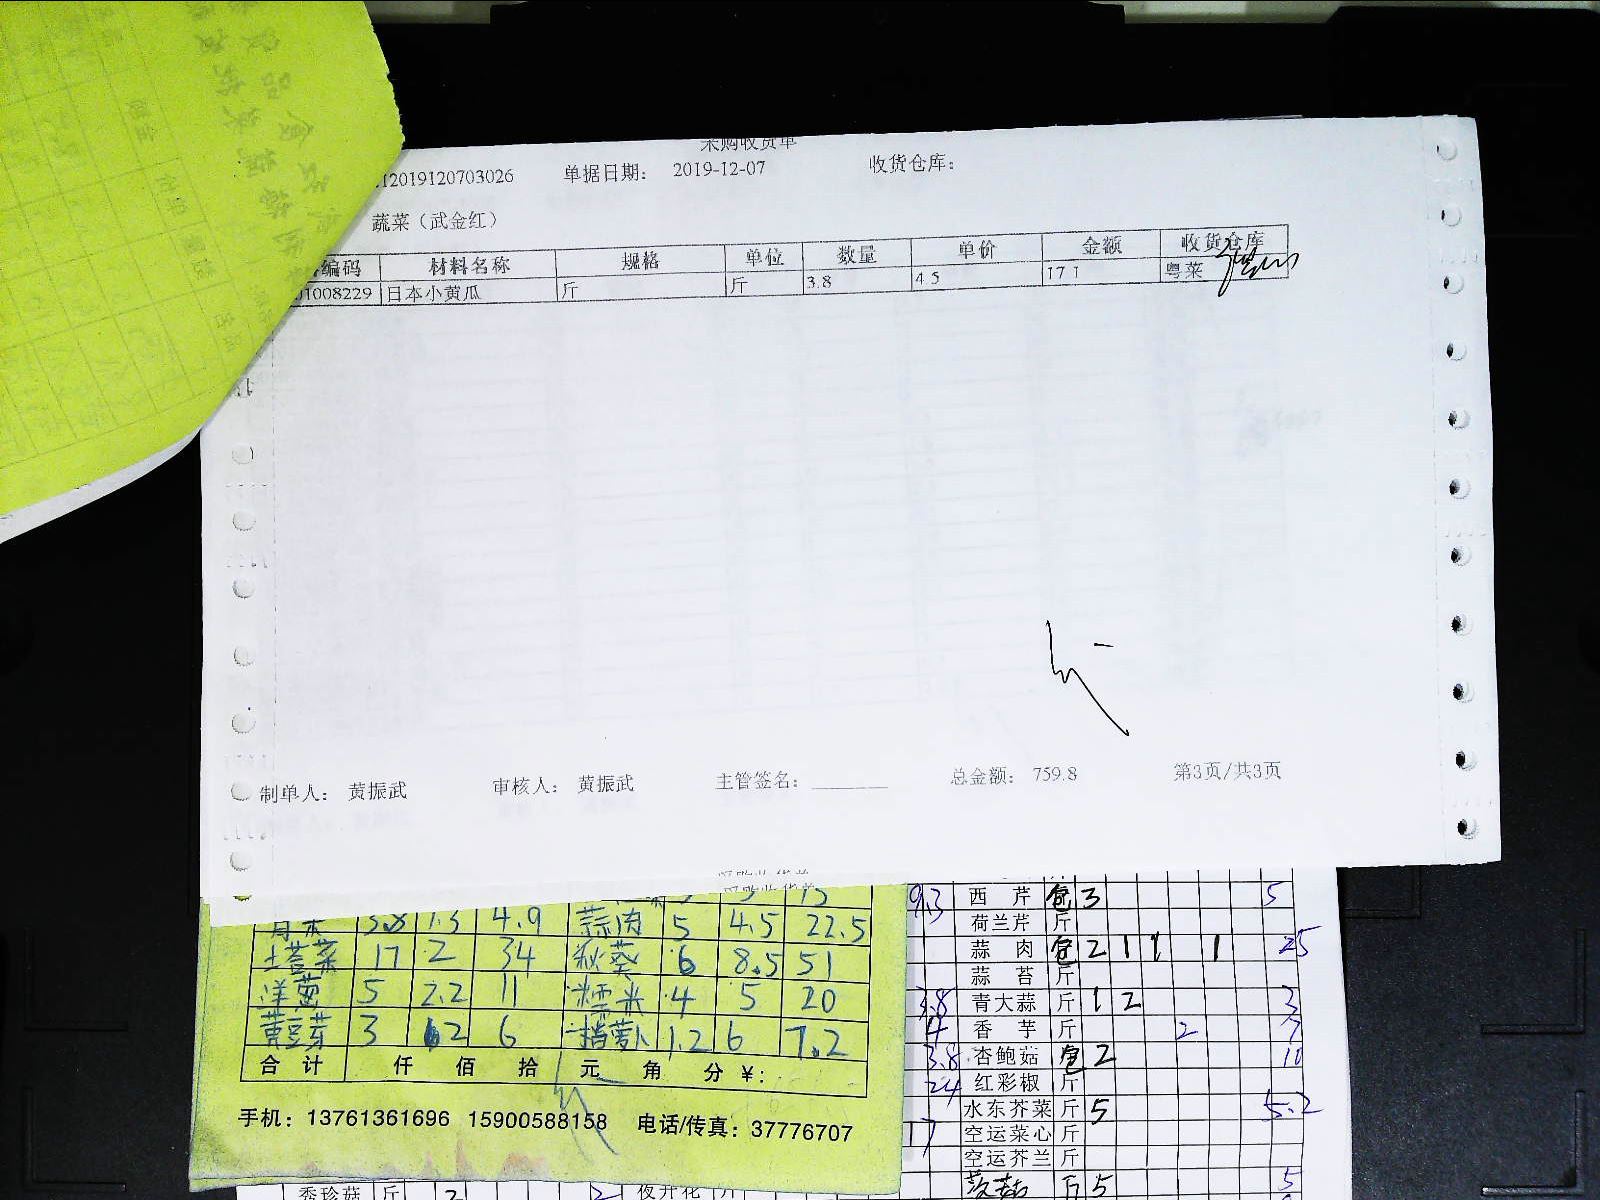 采购收货单
12019120703026 单据日期： 2019-12-07 收货仓库：
蔬菜（武金红）
编码 材料名称 规格 单位 数量 单价 金额 收货仓库
01008229 日本小黄瓜 斤 斤 3.8 4 5 17 1 粤菜
制单人： 黄振武 审核人： 黄振武 主管签名： 总金额： 759.8 第3页/共3页
3.8 1.3 4.9 蒜肉 5 4.5 22.5
土荅菜 17 2 34 秋葵 6 8.5 51
洋葱 5 2.2 11 糯米 4 5 20
黄豆芽 3 2 6 1.2 6 7.2
合计 仟 佰 拾 元 角 分 ¥:
手机：13761361696 15900588158 电话/传真：37776707
9.3 西芹 包 3 5
荷兰芹 斤
蒜肉 包 2 1 1 1 25
蒜苔 斤
3.8 青大蒜 斤 1 2 3
4 香芋 斤 2 7
3.8 杏鲍菇 包 2 10
24 红彩椒 斤
水东芥菜 斤 5 5.2
17 空运菜心 斤
空运芥兰 斤
斤 5 5
秀珍菇 斤 2 2 夜开花 斤